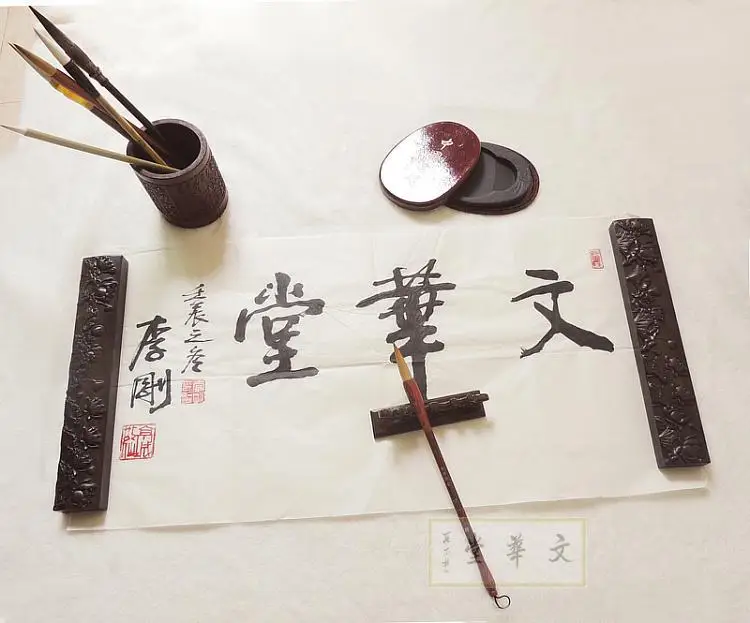 文華堂
壬辰之冬
李剛
文華堂